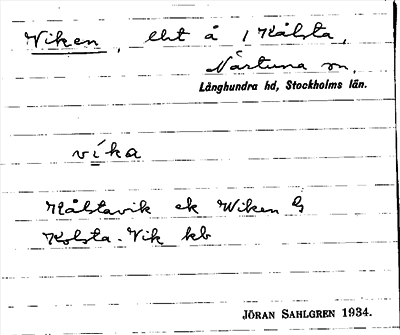 Viken, lht å 1 Kålsta,
Närtuna sn,
Långhundra hd, Stockholms län.
víka
Kålstavik ek Wiken G
Kolsta-Vik kb
JÖRAN SAHLGREN 1934.